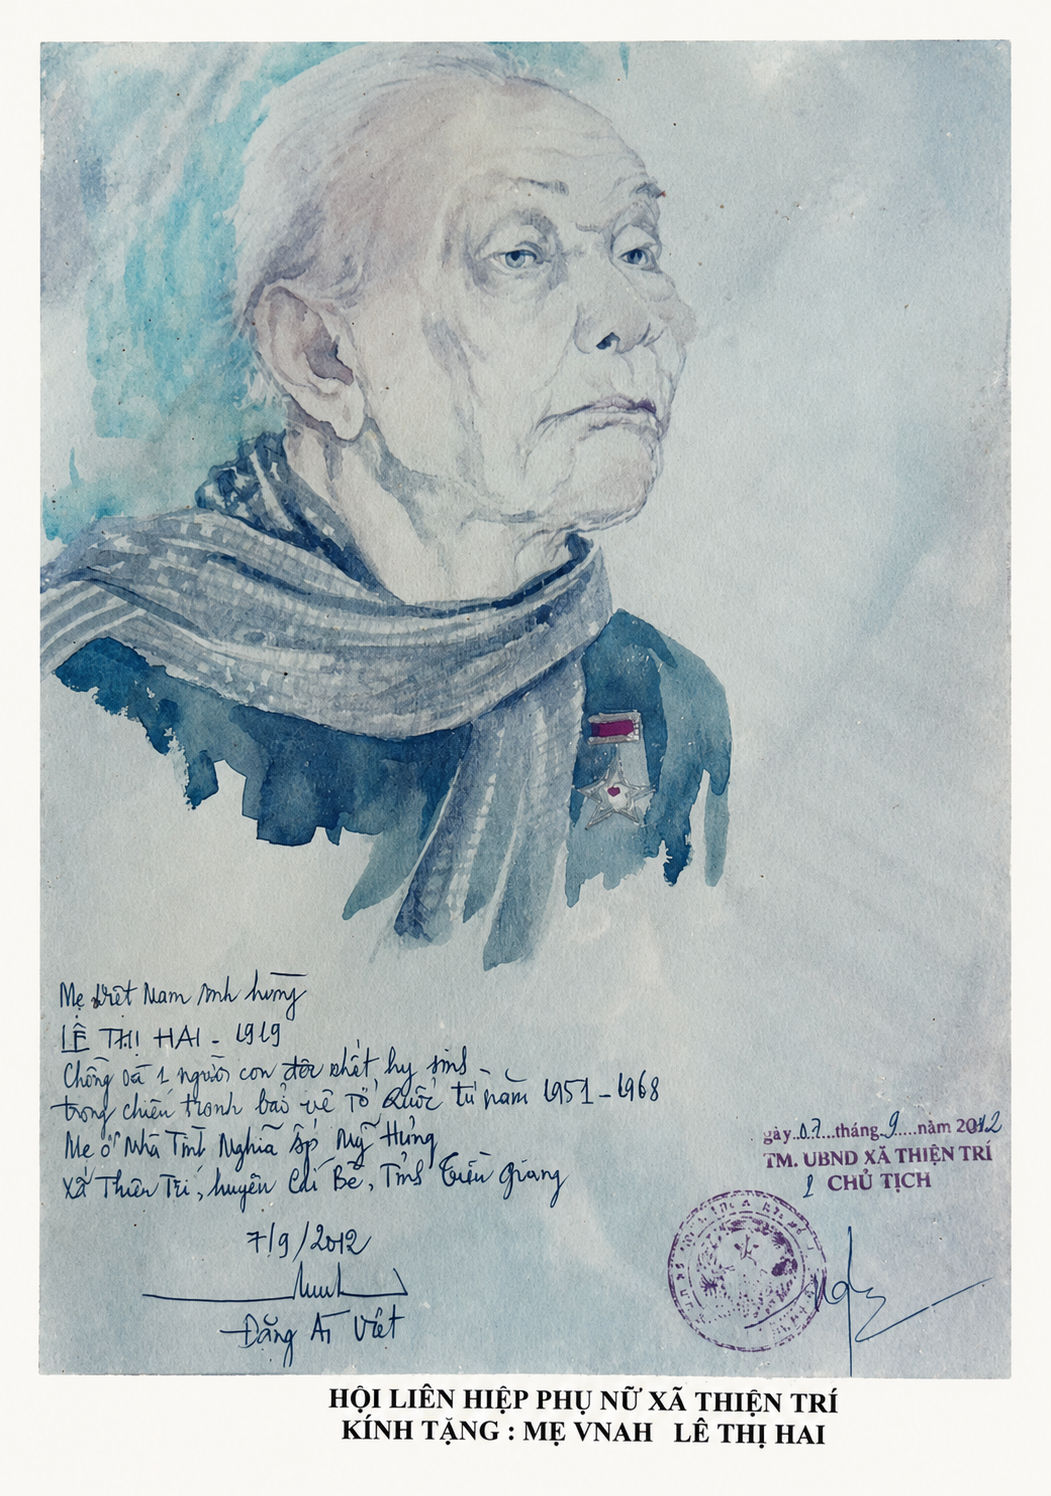 Mẹ Việt Nam Anh hùng
LÊ THỊ HAI - 1919
Chồng và 1 người con đều hy sinh
trong chiến tranh bảo vệ Tổ Quốc từ năm 1951-1968
Mẹ ở Nhà Tình Nghĩa ấp Mỹ Hưng
Xã Thiện Trí, huyện Cái Bè, Tỉnh Tiền Giang
7/9/2012
Đặng Ái Việt
gày..07...tháng.9.....năm 2012
TM. UBND XÃ THIỆN TRÍ
CHỦ TỊCH
HỘI LIÊN HIỆP PHỤ NỮ XÃ THIỆN TRÍ
KÍNH TẶNG : MẸ VNAH LÊ THỊ HAI